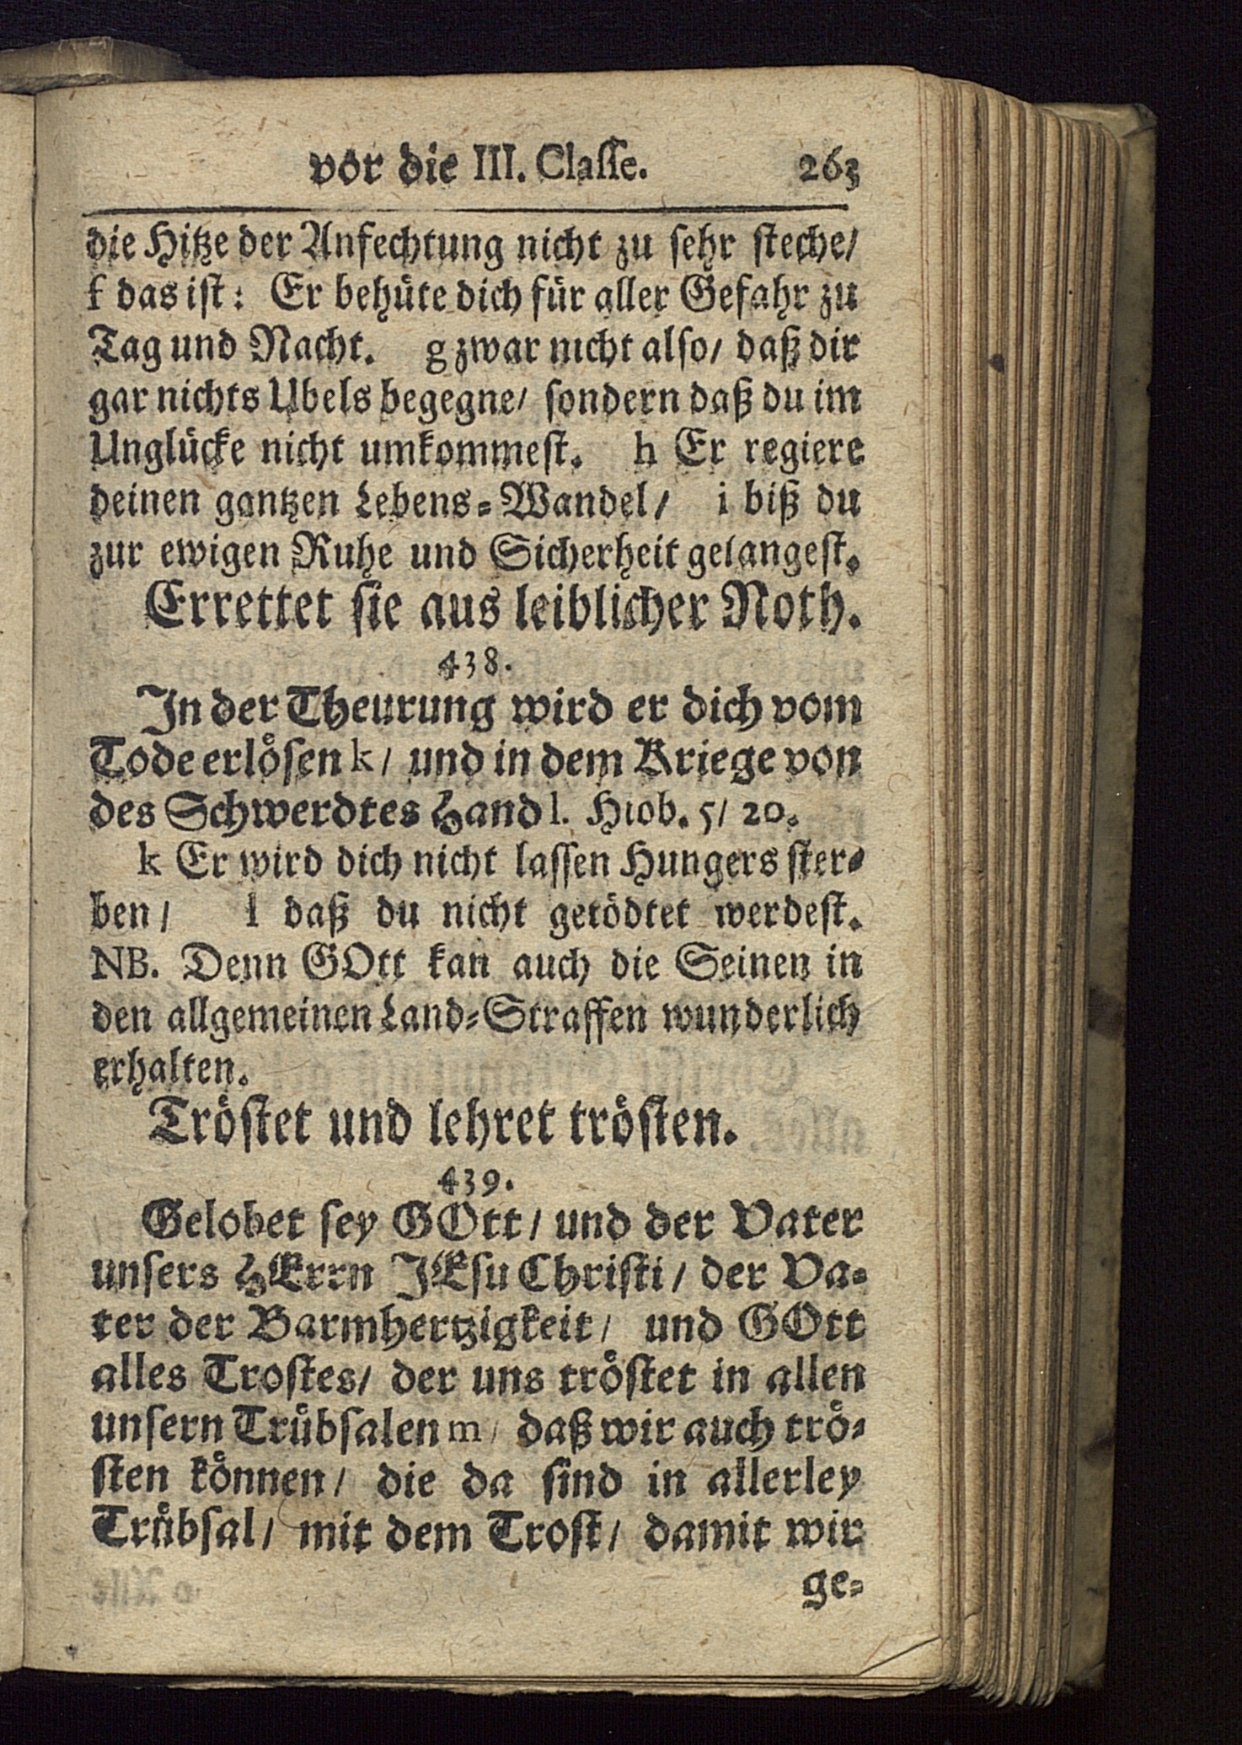 vor die III. Classe. 263
die Hitze der Anfechtung nicht zu sehr steche/
f das ist: Er behüte dich für aller Gefahr zu
Tag und Nacht. g zwar nicht also/ daß dir
gar nichts Ubels begegne/ sondern daß du im
Unglücke nicht umkommest. h Er regiere
deinen gantzen Lebens-Wandel/ i biß du
zur ewigen Ruhe und Sicherheit gelangest.
Errettet sie aus leiblicher Noth.
438.
In der Theurung wird er dich vom
Tode erlösen k/ und in dem Kriege von
des Schwerdtes Hand l. Hiob. 5/ 20.
k Er wird dich nicht lassen Hungers ster-
ben/ l daß du nicht getödtet werdest.
NB. Denn GOtt kan auch die Seinen in
den allgemeinen Land-Straffen wunderlich
erhalten.
Tröstet und lehret trösten.
439.
Gelobet sey GOtt/ und der Vater
unsers HErrn JEsu Christi/ der Va-
ter der Barmhertzigkeit/ und GOtt
alles Trostes/ der uns tröstet in allen
unsern Trübsalen m/ daß wir auch trö-
sten können/ die da sind in allerley
Trübsal/ mit dem Trost/ damit wir
ge-